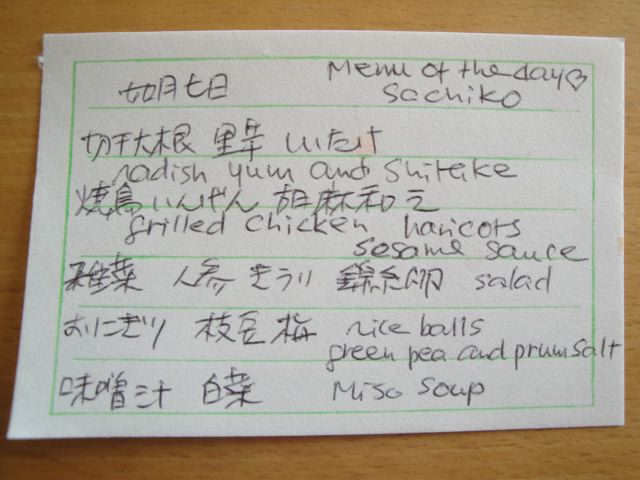 如月七日 Menu of the day♡
Sachiko
切干大根 里芋 しいたけ
radish yum and Shiteke
焼鳥 いんげん 胡麻和え
grilled chicken haricots
sesame sauce
人参 きうり 錦糸卵 salad
おにぎり 枝豆 梅 rice balls
green pea and prum salt
味噌汁 白菜 Miso soup